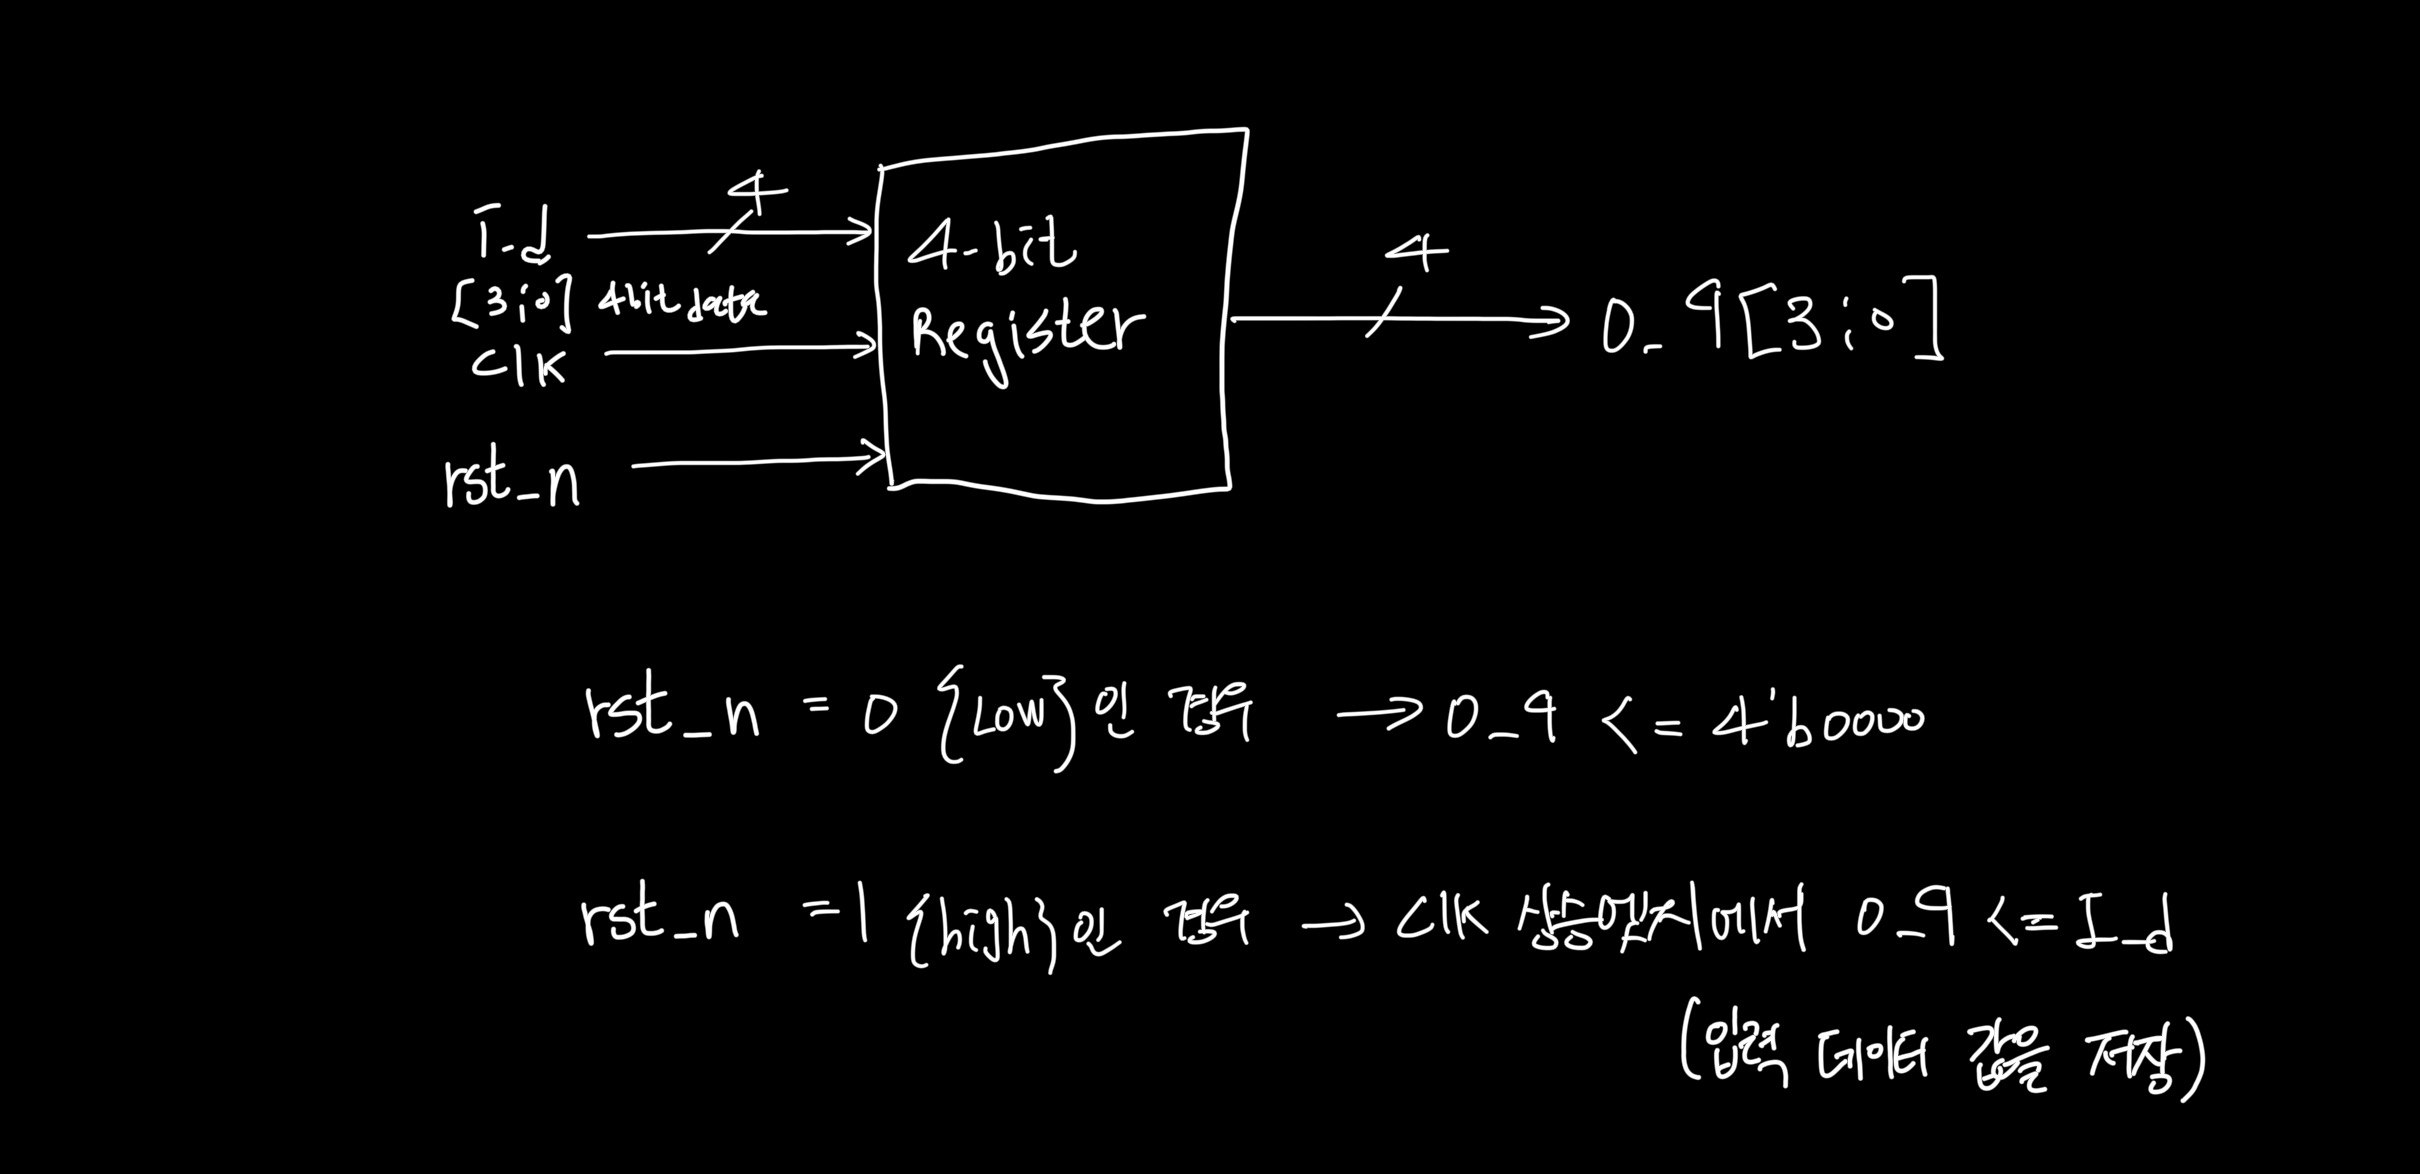 4
i_d
[3:0] 4bit data
clk
rst_n
4-bit
Register
4
o_q[3:0]
rst_n = 0 {Low}인 경우 → o_q <= 4'b0000
rst_n = 1 {high}인 경우 → clk 상승엣지에서 o_q <= I_d
(입력 데이터 값을 저장)